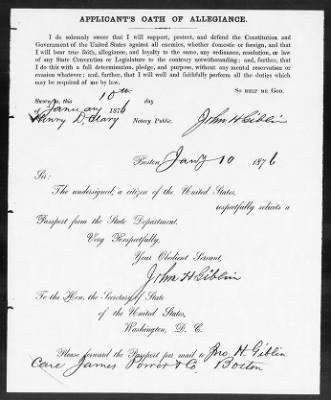 APPLICANT'S OATH OF ALLEGIANCE.
I do solemnly swear that I will support, protect, and defend the Constitution and
Government of the United States against all enemies, whether domestic or foreign, and that
I will bear true faith, allegiance, and loyalty to the same, any ordinance, resolution, or law
of any State Convention or Legislature to the contrary notwithstanding; and, further, that
I do this with a full determination, pledge, and purpose, without any mental reservation or
evasion whatever; and, further, that I will well and faithfully perform all the duties which
may be required of me by law.
SO HELP ME GOD.
Sworn to, this 10th day
of January 1876
Henry D. Notary Public. John H Giblin
Boston Jany 10 1876
Sir:
The undersigned, a citizen of the United States,
respectfully solicits a
Passport from the State Department.
Very Respectfully,
Your Obedient Servant,
John H Giblin
To the Hon. the Secretary of State
of the United States,
Washington, D. C.
Please forward the Passport per mail to Jno H. Giblin
Care James Power & Co. Boston